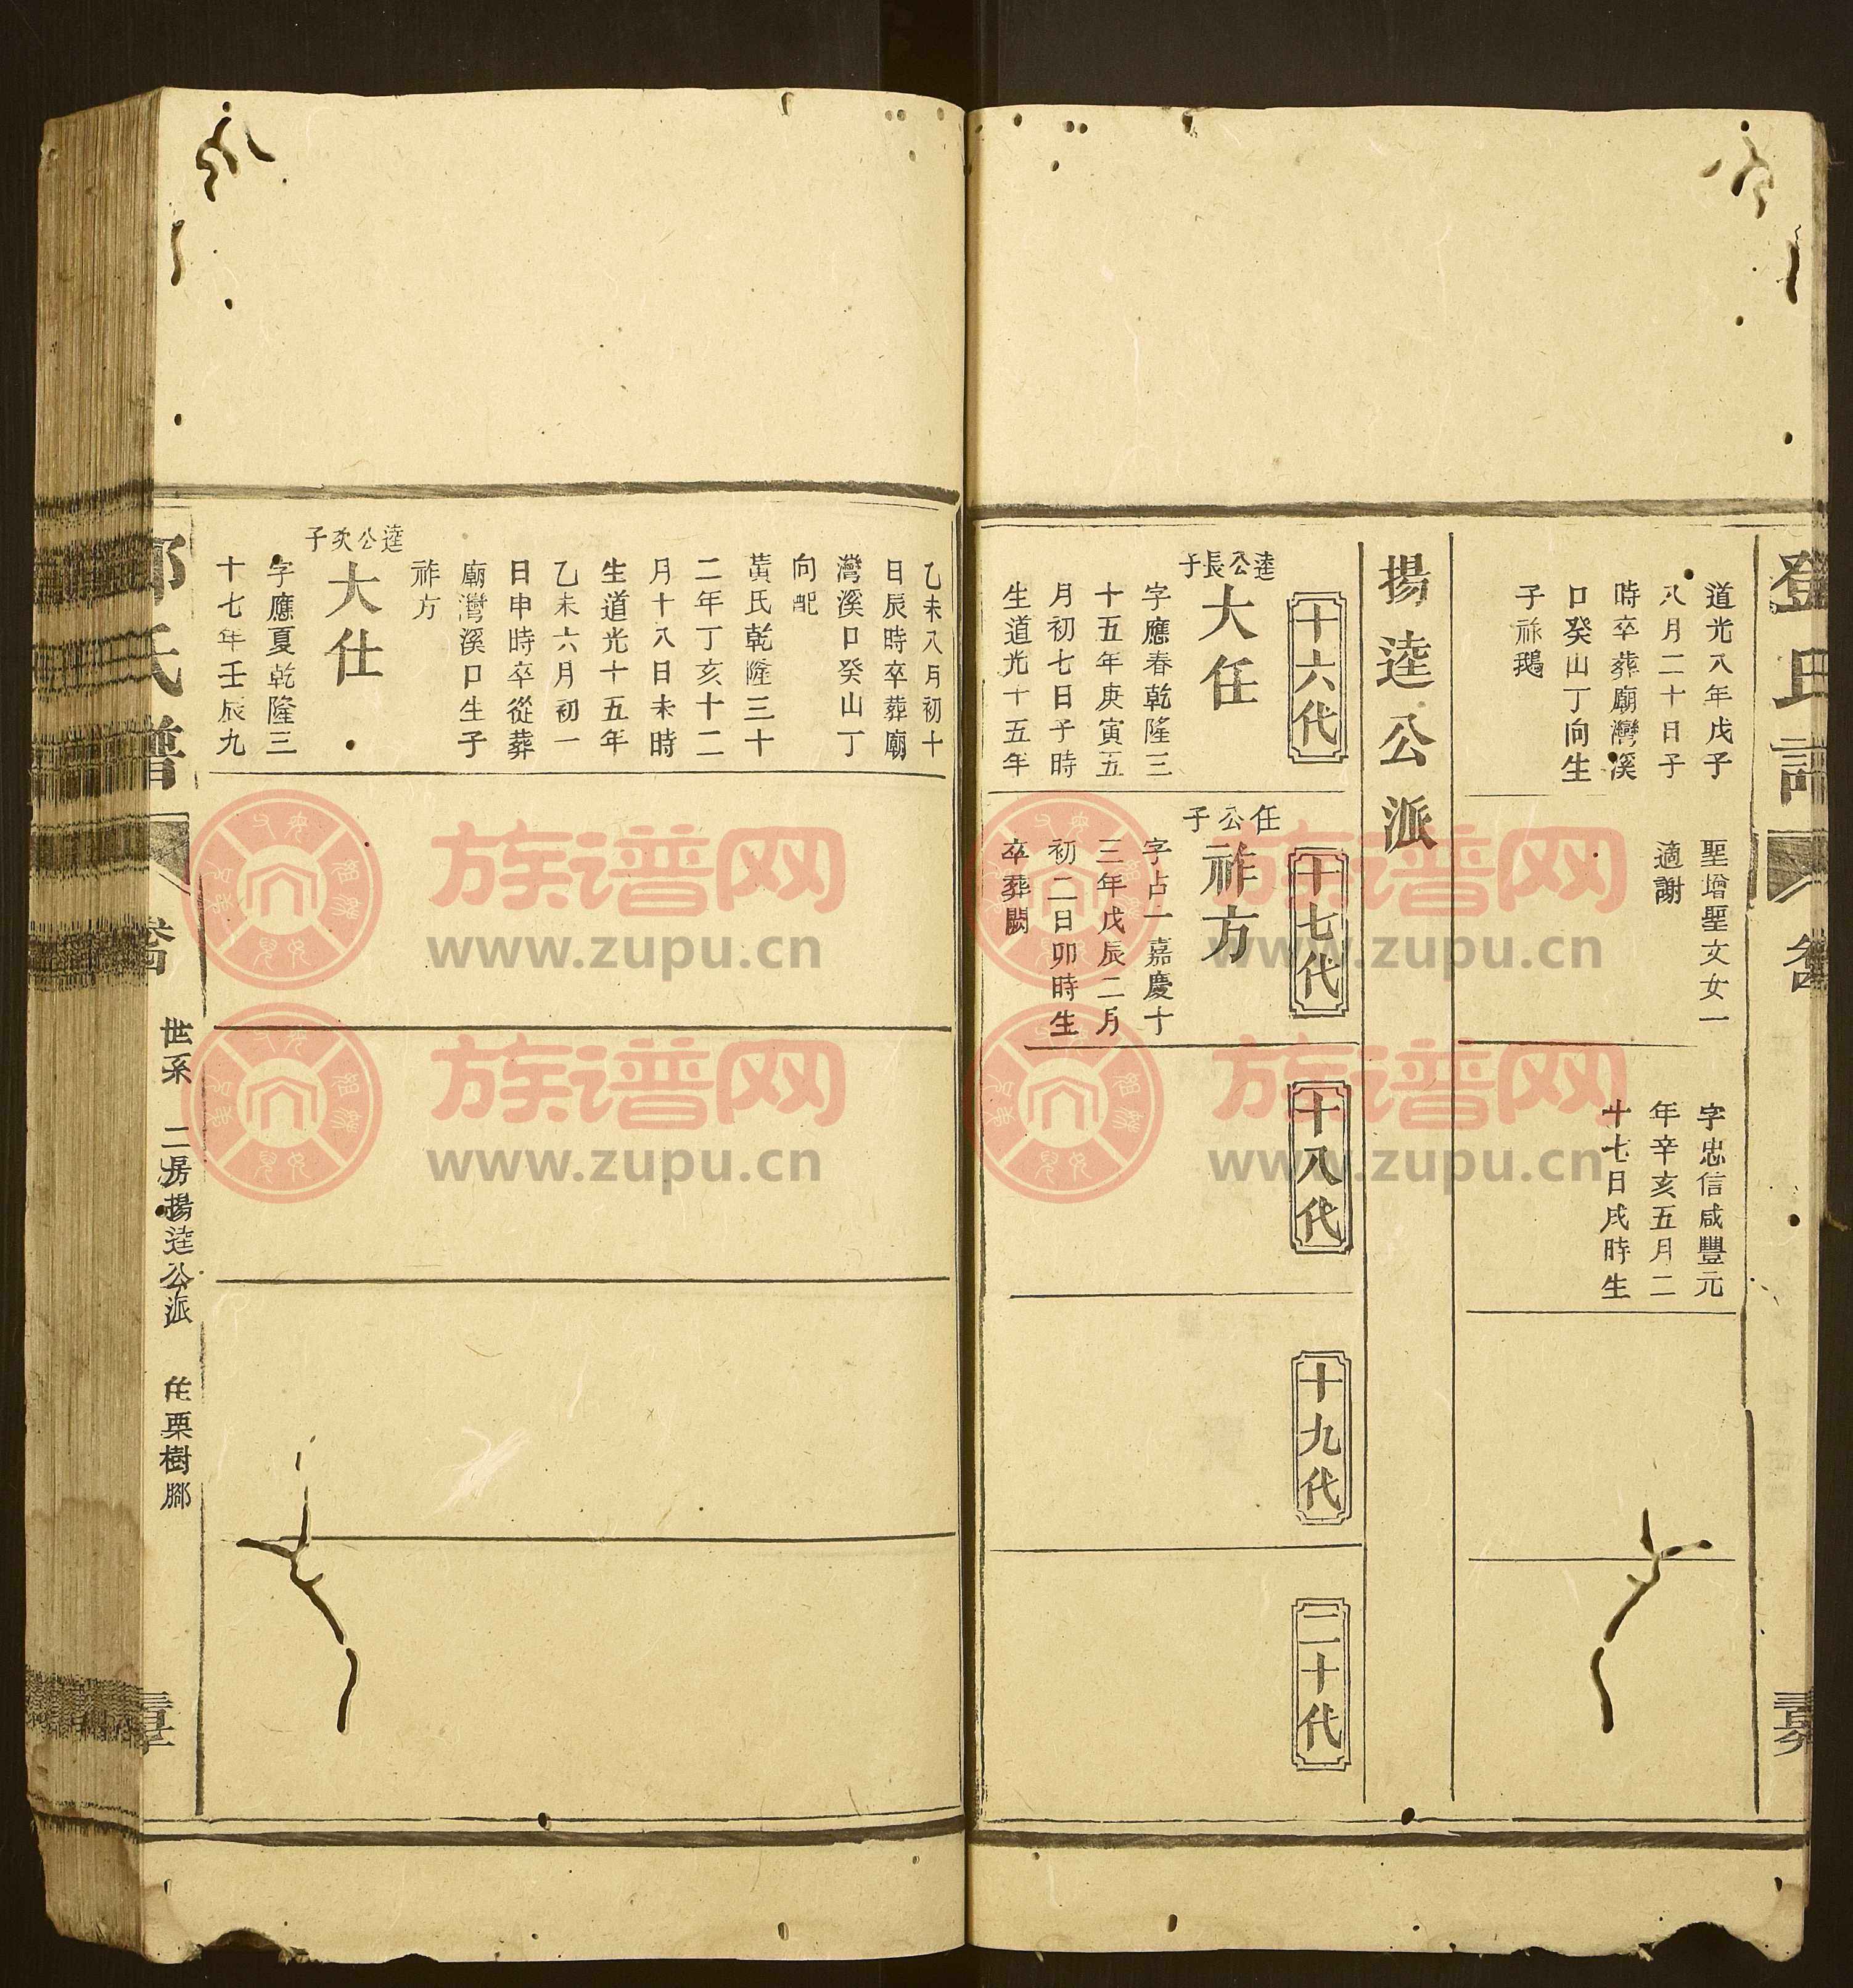 道光八年戊子
八月二十日子
時卒葬廟灣溪
口癸山丁向生
子祿鵝
聖增聖文女一
適謝
字忠信咸豐元
年辛亥五月二
十七日戌時生
揚逵公派
十六代
十七代
十八代
十九代
二十代
逵公長子
大任
字應春乾隆三
十五年庚寅五
月初七日子時
生道光十五年
任公子
祚方
字占一嘉慶十
三年戊辰二月
初二日卯時生
卒葬闕
乙未八月初十
日辰時卒葬廟
灣溪口癸山丁
向配
黃氏乾隆三十
二年丁亥十二
月十八日未時
生道光十五年
乙未六月初一
日申時卒從葬
廟灣溪口生子
祚方
逵公次子
大仕
字應夏乾隆三
十七年壬辰九
氏譜
世系 二房揚逵公派 住栗樹腳
族谱网
www.zupu.cn
族谱网
www.zupu.cn
族谱网
www.zupu.cn
族谱网
www.zupu.cn